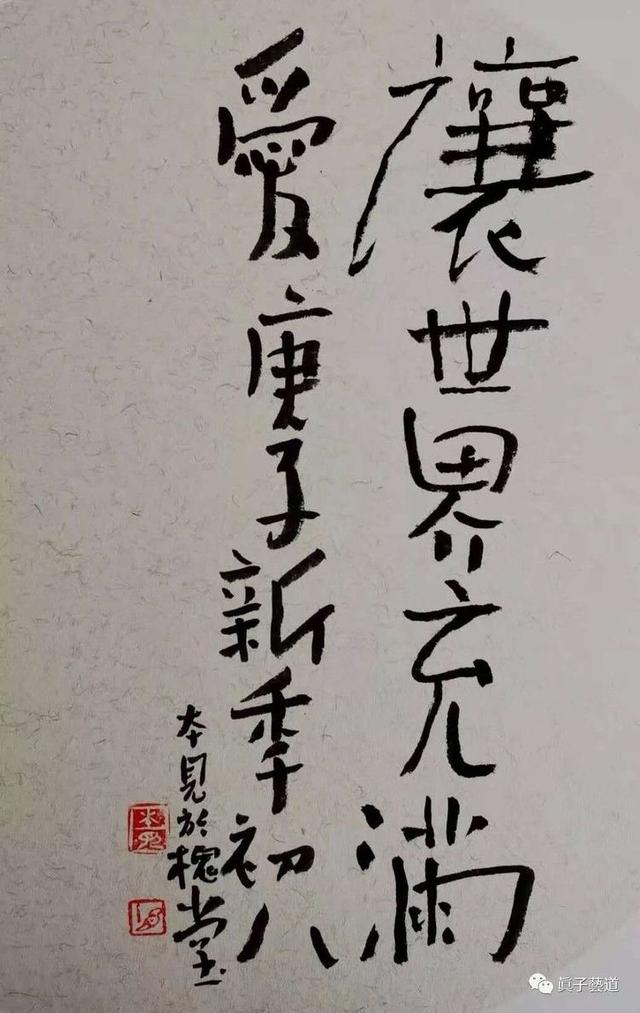 讓世界充滿
愛庚子新秊初八
本見於槐堂
眞子藝道